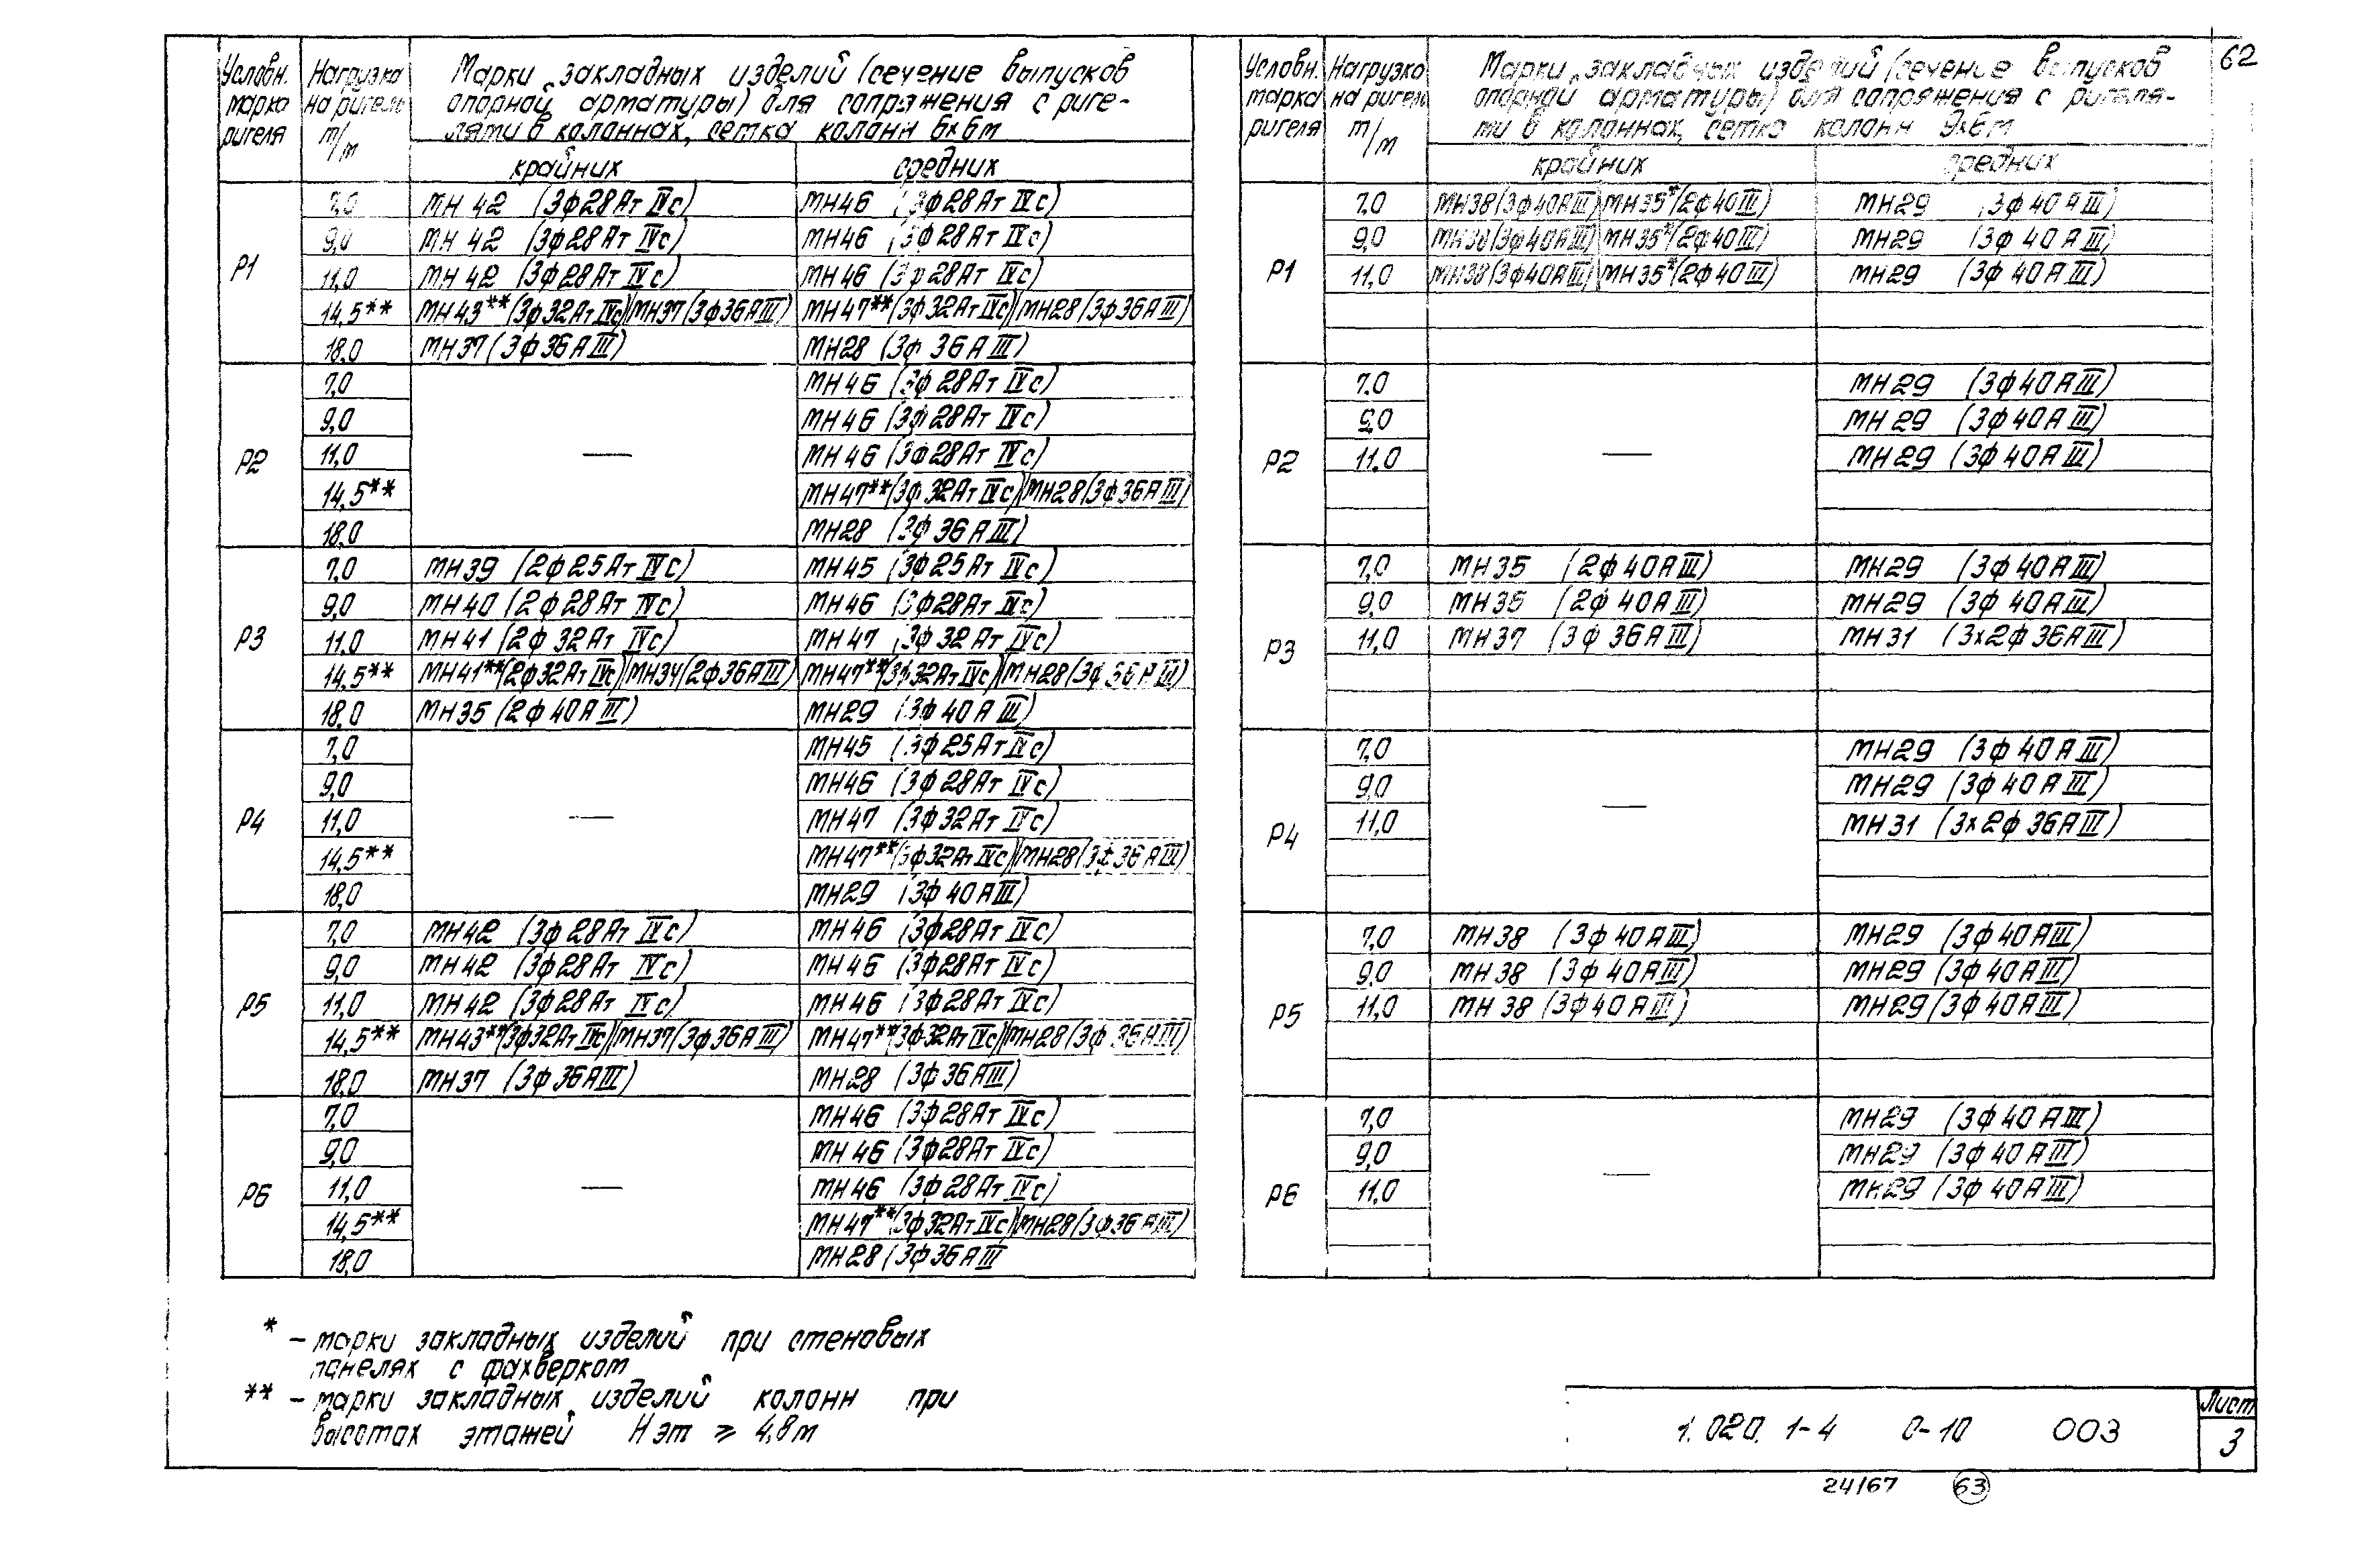 62
Условн. Нагрузка Марки закладных изделий (сечение выпусков
марка на ригель опорной арматуры) для сопряжения с риге-
ригеля т/м лями в колоннах, сетка колонн 6х6м
крайних средних
Р1
7,0 МН 42 (3ф28Ат IVс) МН46 (3ф28Ат IVс)
9,0 МН 42 (3ф28Ат IVс) МН46 (3ф28Ат IVс)
11,0 МН 42 (3ф28Ат IVс) МН46 (3ф28Ат IVс)
14,5** МН43**(3ф32Ат IVс)(МН37(3ф36АIII) МН47**(3ф32Ат IVс)(МН28(3ф36АIII)
18,0 МН37(3ф36АIII) МН28 (3ф36АIII)
Р2
7,0 МН46 (3ф28Ат IVс)
9,0 МН46 (3ф28Ат IVс)
11,0 — МН46 (3ф28Ат IVс)
14,5** МН47**(3ф32Ат IVс)(МН28(3ф36АIII)
18,0 МН28 (3ф36АIII)
Р3
7,0 МН39 (2ф25Ат IVс) МН45 (3ф25Ат IVс)
9,0 МН40 (2ф28Ат IVс) МН46 (3ф28Ат IVс)
11,0 МН41 (2ф32Ат IVс) МН47 (3ф32Ат IVс)
14,5** МН41**(2ф32Ат IVс)(МН34(2ф36АIII) МН47**(3ф32Ат IVс)(МН28(3ф36АIII)
18,0 МН35 (2ф40АIII) МН29 (3ф40АIII)
Р4
7,0 МН45 (3ф25Ат IVс)
9,0 МН46 (3ф28Ат IVс)
11,0 — МН47 (3ф32Ат IVс)
14,5** МН47**(3ф32Ат IVс)(МН28(3ф36АIII)
18,0 МН29 (3ф40АIII)
Р5
7,0 МН42 (3ф28Ат IVс) МН46 (3ф28Ат IVс)
9,0 МН42 (3ф28Ат IVс) МН46 (3ф28Ат IVс)
11,0 МН42 (3ф28Ат IVс) МН46 (3ф28Ат IVс)
14,5** МН43**(3ф32Ат IVс)(МН37(3ф36АIII) МН47**(3ф32Ат IVс)(МН28(3ф36АIII)
18,0 МН37 (3ф36АIII) МН28 (3ф36АIII)
Р6
7,0 МН46 (3ф28Ат IVс)
9,0 МН46 (3ф28Ат IVс)
11,0 — МН46 (3ф28Ат IVс)
14,5** МН47**(3ф32Ат IVс)(МН28(3ф36АIII)
18,0 МН28 (3ф36АIII
Условн. Нагрузка Марки закладных изделий (сечение выпусков
марка на ригель опорной арматуры) для сопряжения с ригеля-
ригеля т/м ми в колоннах, сетка колонн 9х6м
крайних средних
Р1
7,0 МН38(3ф40АIII)(МН35*(2ф40III) МН29 (3ф40АIII)
9,0 МН38(3ф40АIII)(МН35*(2ф40III) МН29 (3ф40АIII)
11,0 МН38(3ф40АIII)(МН35*(2ф40III) МН29 (3ф40АIII)
Р2
7,0 МН29 (3ф40АIII)
9,0 МН29 (3ф40АIII)
11,0 — МН29 (3ф40АIII)
Р3
7,0 МН35 (2ф40АIII) МН29 (3ф40АIII)
9,0 МН35 (2ф40АIII) МН29 (3ф40АIII)
11,0 МН37 (3ф36АIII) МН31 (3х2ф36АIII)
Р4
7,0 МН29 (3ф40АIII)
9,0 — МН29 (3ф40АIII)
11,0 МН31 (3х2ф36АIII)
Р5
7,0 МН38 (3ф40АIII) МН29 (3ф40АIII)
9,0 МН38 (3ф40АIII) МН29 (3ф40АIII)
11,0 МН38 (3ф40АIII) МН29 (3ф40АIII)
Р6
7,0 МН29 (3ф40АIII)
9,0 — МН29 (3ф40АIII)
11,0 МН29 (3ф40АIII)
* – марки закладных изделий при стеновых
панелях с фахверком
** – марки закладных изделий колонн при
высотах этажей Нэт ≥ 4,8м
1.020.1-4 0-10 003
Лист
3
24167 63